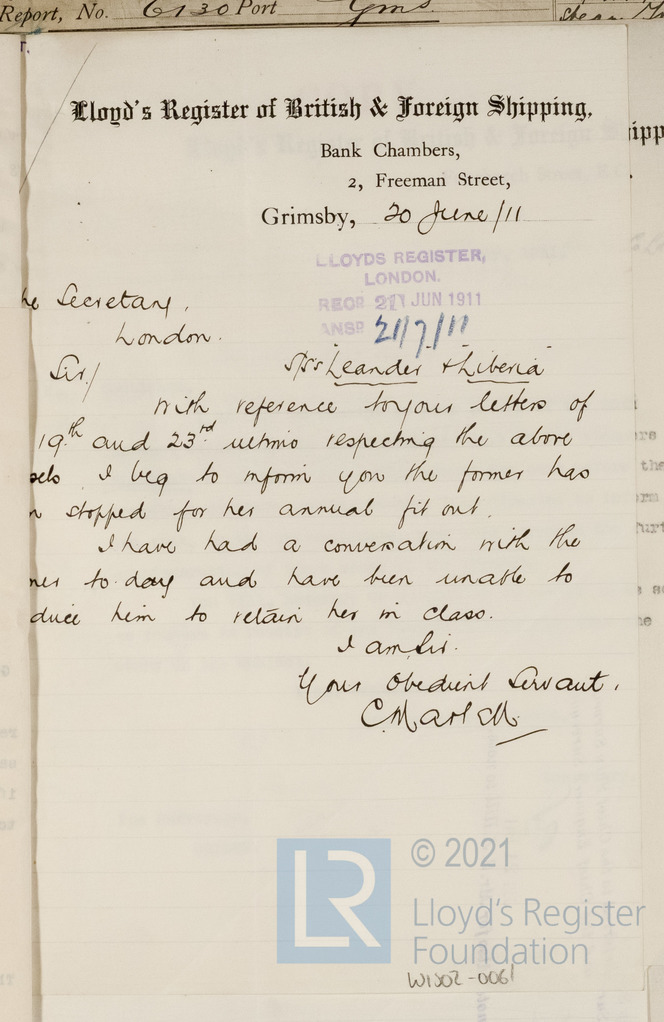 Report, No. 6130 Port Gms
Lloyd's Register of British & Foreign Shipping,
Bank Chambers,
2, Freeman Street,
Grimsby, 20 June/11
LLOYDS REGISTER,
LONDON.
RECD 21 JUN 1911
ANSD 21/7/11
he Secretary,
London.
Sir/ S/Ss Leander & Liberia
With reference to your letters of
19th and 23rd ultimo respecting the above
sels I beg to inform you the former has
n stopped for her annual fit out.
I have had a conversation with the
ner to-day and have been unable to
duce him to retain her in class.
I am Sir.
Your Obedient Servant,
© 2021
LR
Lloyd's Register
Foundation
W1802-0061